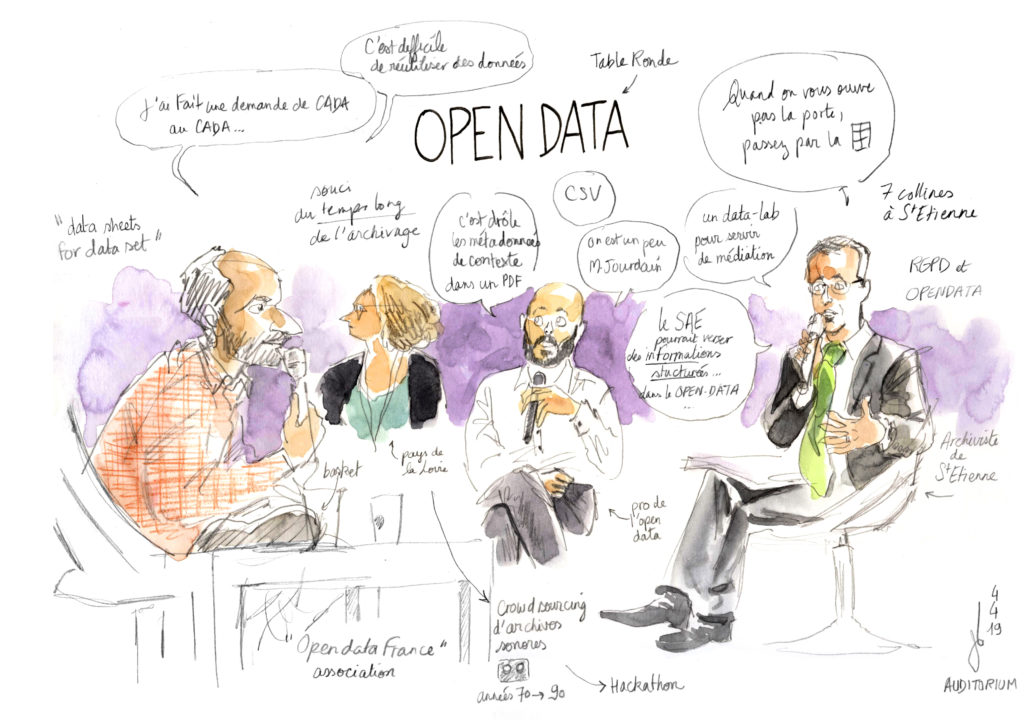 C'est difficile
de réutiliser des données
Table Ronde
J'ai fait une demande de CADA
au CADA...
OPEN DATA
Quand on vous ouvre
pas la porte,
passez par la
"data sheets
for data set"
souci
du temps long
de l'archivage
c'est drôle
les métadonnées
de contexte
dans un PDF
CSV
on est un peu
M. Jourdain
un data-lab
pour servir
de médiation
7 collines
à St Etienne
RGPD et
OPENDATA
le SAE
pourrait verser
des informations
stucturées...
dans le OPEN-DATA
...
basket
pays de
la Loire
pro de
l'open
data
Archiviste
de
St Etienne
"Opendata France"
association
Crowdsourcing
d'archives
sonores
années 70 → 90
Hackathon
4
4
19
AUDITORIUM